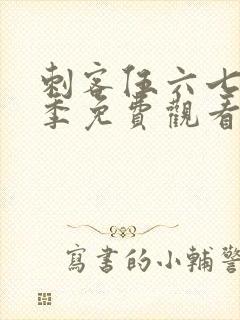 刺客伍六七
季免費觀看
寫書的小輔警